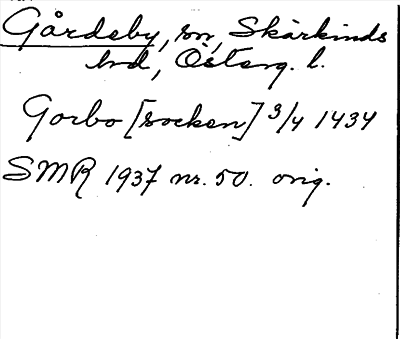 Gårdeby, sn, Skärkinds
hd, Österg. l.
Gorbo [socken] 3/4 1434
SMR 1937 nr. 50. orig.